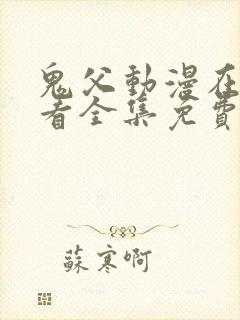 鬼父動漫在
看全集免費
蘇寒啊